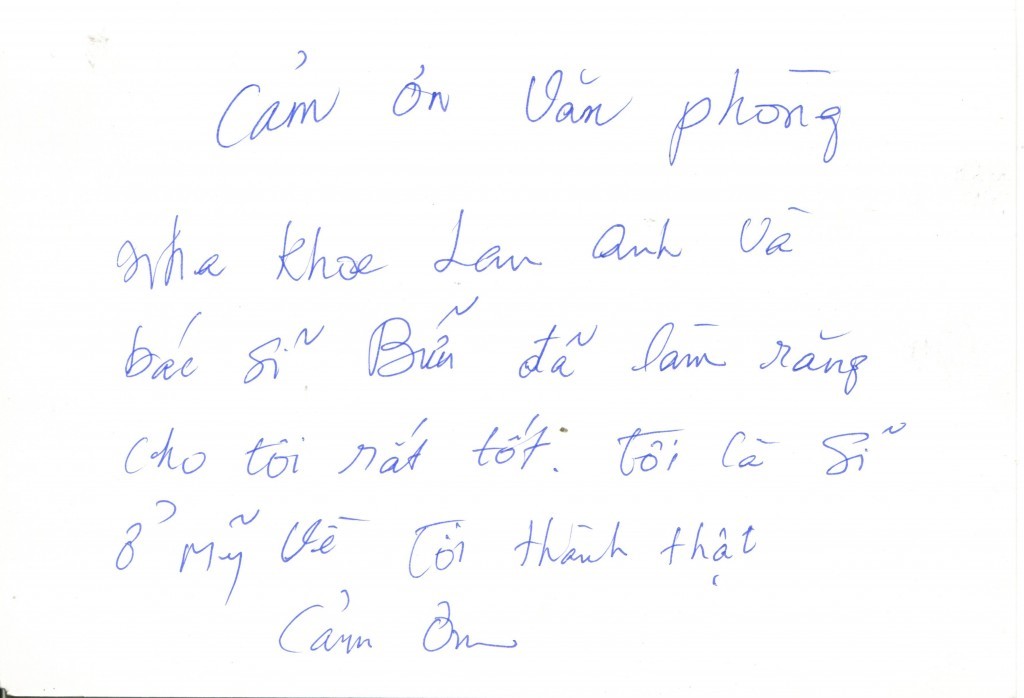 Cảm ơn Văn phòng
Nha khoa Lan Anh Và
bác sĩ Bửu đã làm răng
cho tôi rất tốt. Tôi Ca sĩ
ở Mỹ Về Tôi thành thật
Cảm Ơn